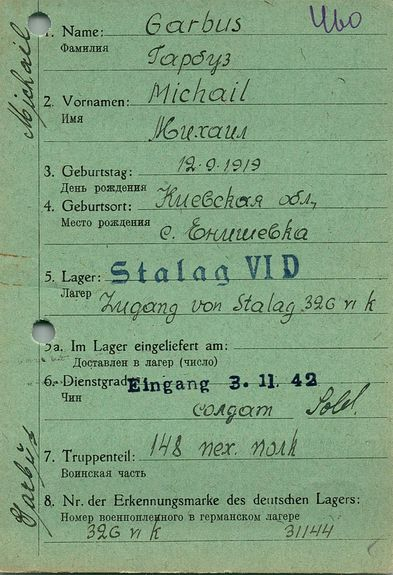 Чво
1. Name: Garbus
Фамилия Гарбуз
2. Vornamen: Michail
Имя Михаил
3. Geburtstag: 12.9.1919
День рождения
4. Geburtsort: Киевская обл,
Место рождения с. Енишевка
5. Lager: Stalag VI D
Лагерь Zugang von Stalag 326 VI K
5a. Im Lager eingeliefert am:
Доставлен в лагерь (число)
6. Dienstgrad: Eingang 3. 11. 42
Чин солдат Sold.
7. Truppenteil: 148 пех. полк
Воинская часть
8. Nr. der Erkennungsmarke des deutschen Lagers:
Номер военнопленного в германском лагере
326 VI K 31144
Michail
Garbus